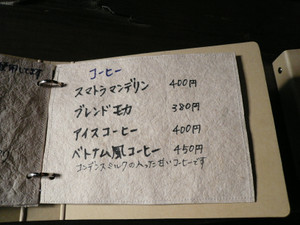 コーヒー
スマトラマンデリン 400円
ブレンドモカ 380円
アイスコーヒー 400円
ベトナム風コーヒー 450円
コンデンスミルクの入った甘いコーヒーです